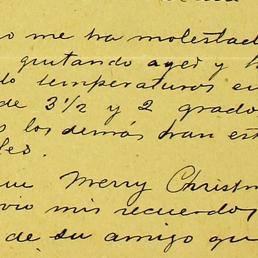 o me ha molestad
gritando ayer y h
do temperaturas en
de 3½ y 2 grado
s los demás han est
les.
ue Merry Christm
vio mis recuerdos,
de su amigo qu